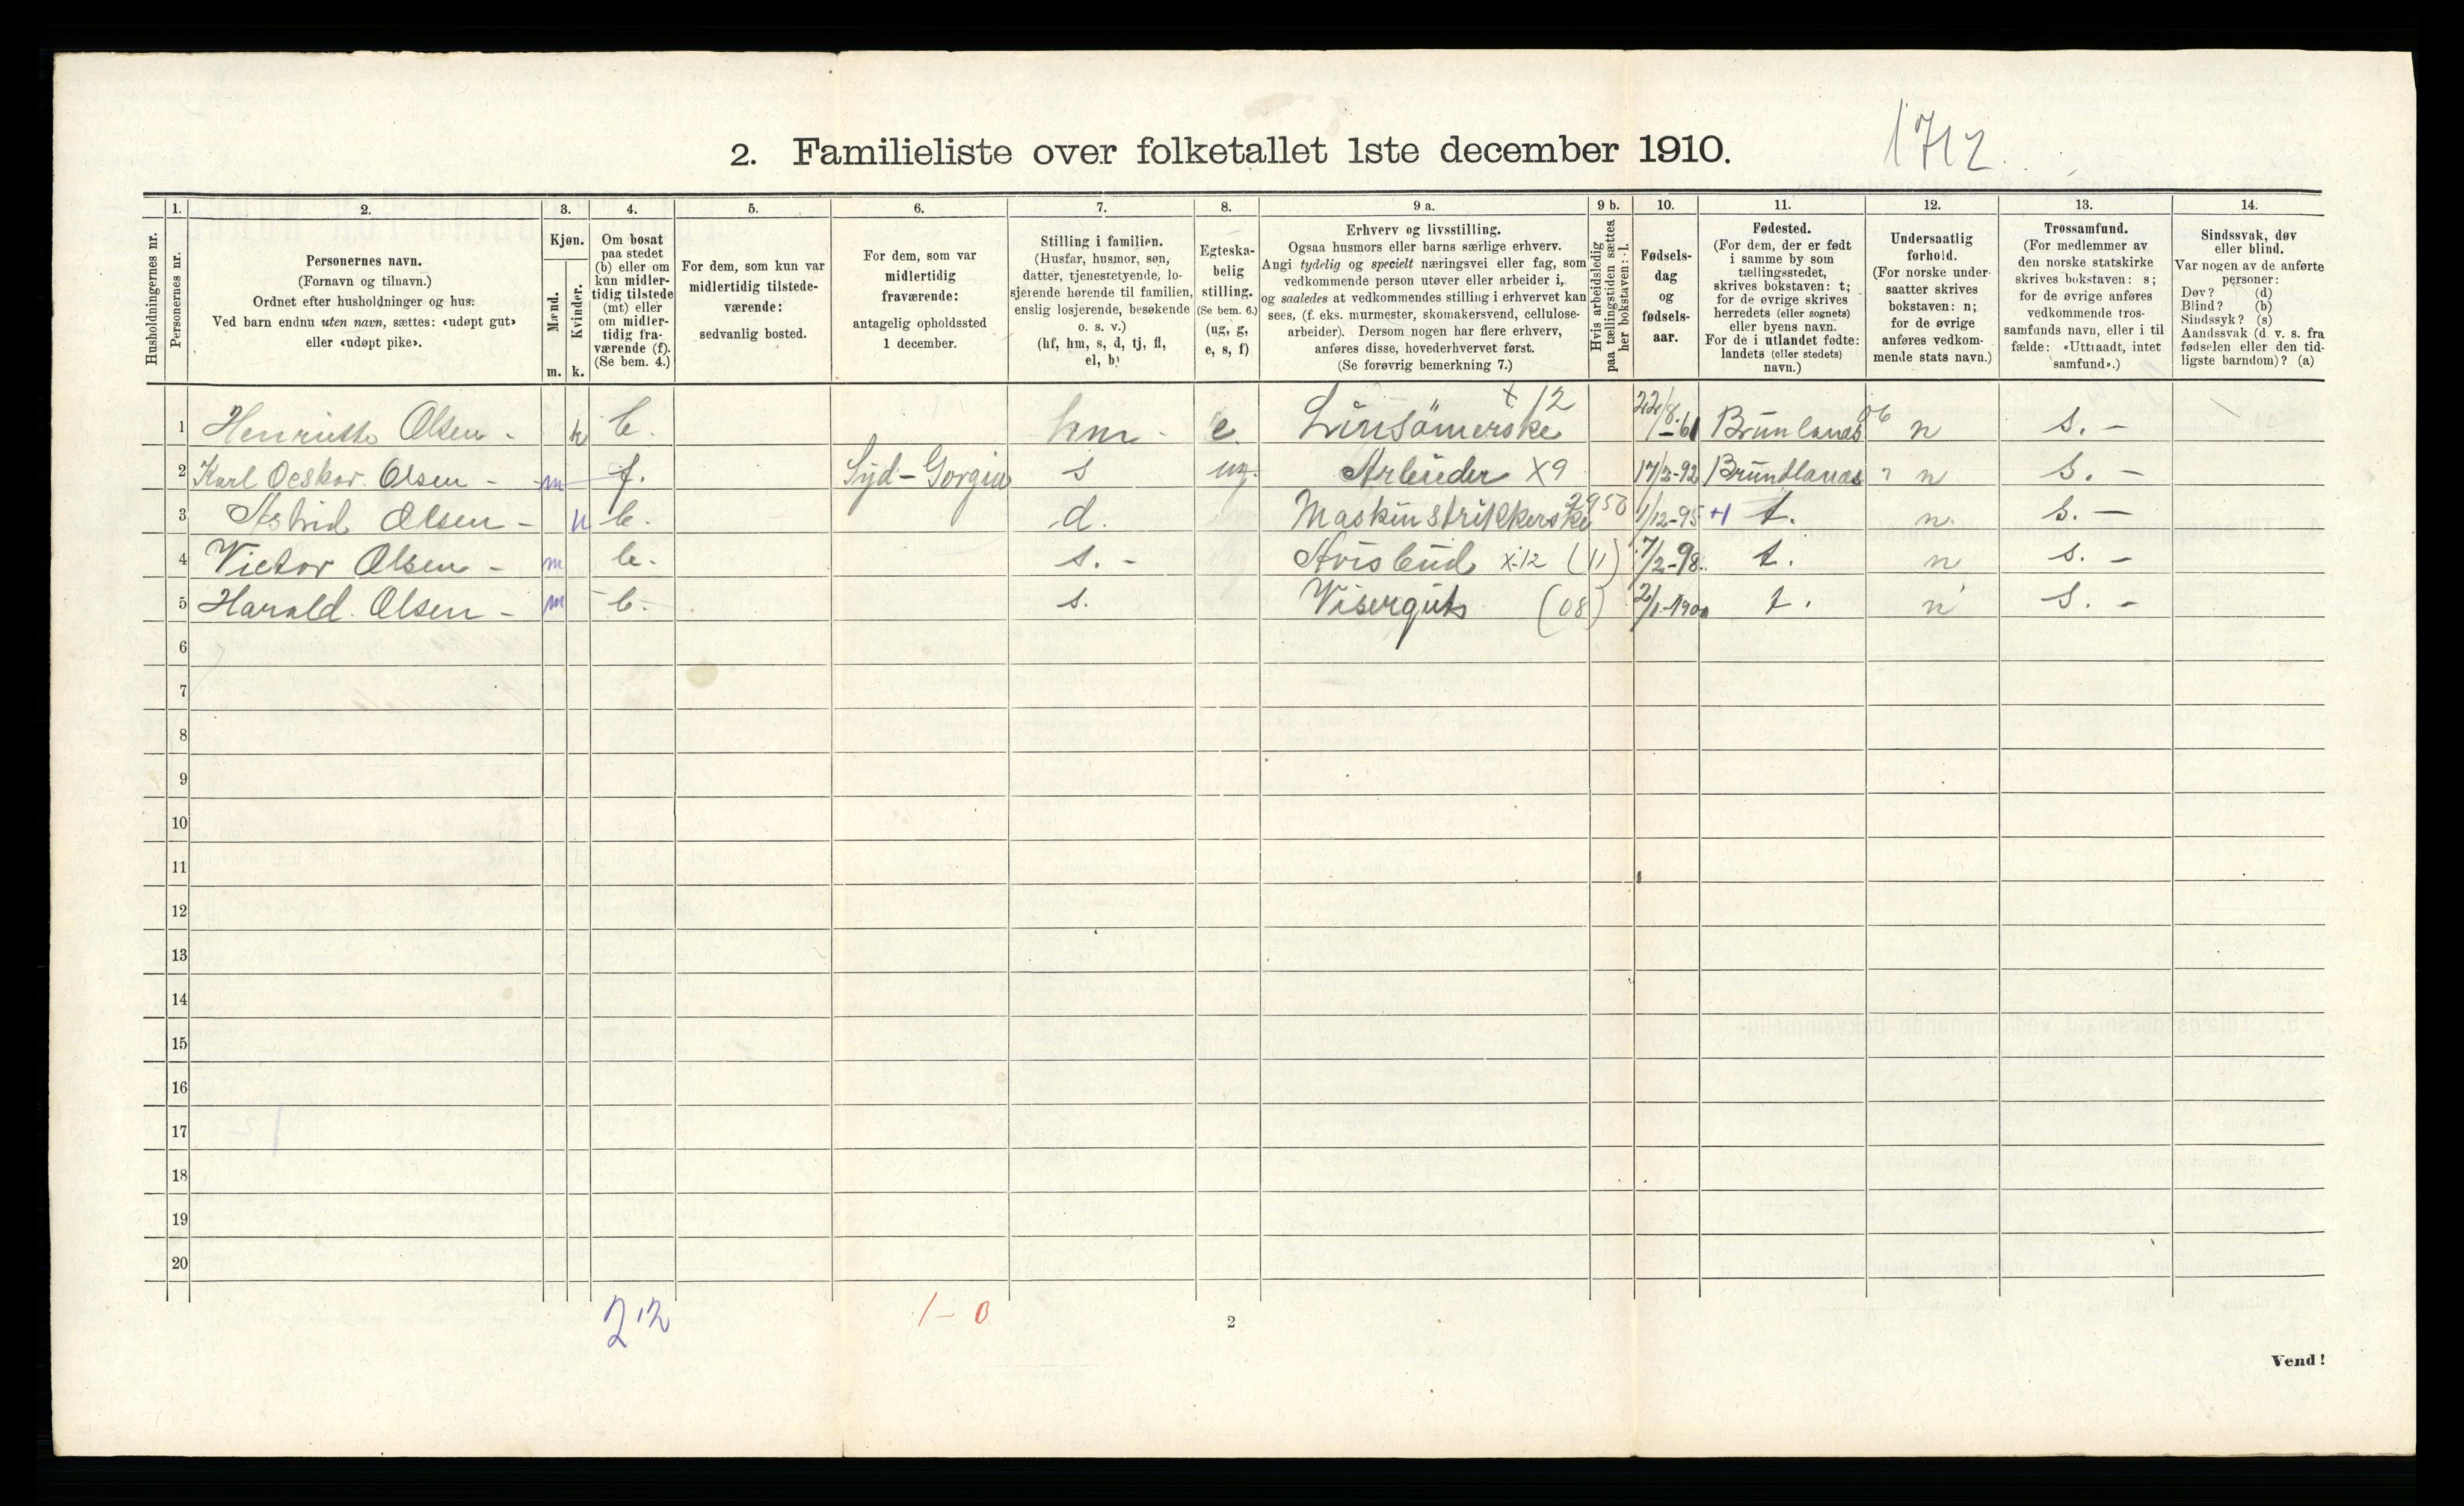 2. Familieliste over folketallet 1ste december 1910.
1712.
Husholdningernes nr.
1.
Personernes nr.
2.
Personernes navn.
(Fornavn og tilnavn.)
Ordnet efter husholdninger og hus.
Ved barn endnu uten navn, sættes: «udøpt gut»
eller «udøpt pike».
3.
Kjøn.
Mænd.
Kvinder.
m. k.
4.
Om bosat
paa stedet
(b) eller om
kun midler-
tidig tilstede
(mt) eller
om midler-
tidig fra-
værende (f).
(Se bem. 4.)
5.
For dem, som kun var
midlertidig tilstede-
værende:
sedvanlig bosted.
6.
For dem, som var
midlertidig
fraværende:
antagelig opholdssted
1 december.
7.
Stilling i familien.
(Husfar, husmor, søn,
datter, tjenestetyende, lo-
sjerende hørende til familien,
enslig losjerende, besøkende
o. s. v.)
(hf, hm, s, d, tj, fl,
el, b)
8.
Egteska-
belig
stilling.
(Se bem. 6.)
(ug, g,
e, s, f)
9 a.
Erhverv og livsstilling.
Ogsaa husmors eller barns særlige erhverv.
Angi tydelig og specielt næringsvei eller fag, som
vedkommende person utøver eller arbeider i,
og saaledes at vedkommendes stilling i erhvervet kan
sees, (f. eks. murmester, skomakersvend, cellulose-
arbeider). Dersom nogen har flere erhverv,
anføres disse, hovederhvervet først.
(Se forøvrig bemerkning 7.)
9 b.
Hvis arbeidsledig
paa tællingstiden sættes
her bokstaven: l.
10.
Fødsels-
dag
og
fødsels-
aar.
11.
Fødested.
(For dem, der er født
i samme by som
tællingsstedet,
skrives bokstaven: t;
for de øvrige skrives
herredets (eller sognets)
eller byens navn.
For de i utlandet fødte:
landets (eller stedets)
navn.)
12.
Undersaatlig
forhold.
(For norske under-
saatter skrives
bokstaven: n;
for de øvrige
anføres vedkom-
mende stats navn.)
13.
Trossamfund.
(For medlemmer av
den norske statskirke
skrives bokstaven: s;
for de øvrige anføres
vedkommende tros-
samfunds navn, eller i til
fælde: «Uttraadt, intet
samfund».)
14.
Sindssvak, døv
eller blind.
Var nogen av de anførte
personer:
Døv? (d)
Blind? (b)
Sindssyk? (s)
Aandssvak (d. v. s. fra
fødselen eller den tid-
ligste barndom)? (a)
1 Henriette Olsen - k b. hm - e. Linsömerske x 12 22/8-61 Brunlanæs 06 n s. -
2 Karl Oeskar Olsen - m f. Syd-Gorgin s ug. Arbeider x9 17/3-92 Brundlanæs " n s. -
3 Astrid Olsen - k b. d. Maskinstrikkerske 2950 1/12-95 +1 t. n. s. -
4 Victor Olsen - m b. s. - Avisbud x12 (11) 7/2-98. t. n s. -
5 Harald Olsen - m b. s. Visergut (08) 2/1-1900 t. n s. -
6
7
8
9
10
11
12
13
14
15
16
17
18
19
20
2 12
1 - 0
2
Vend!